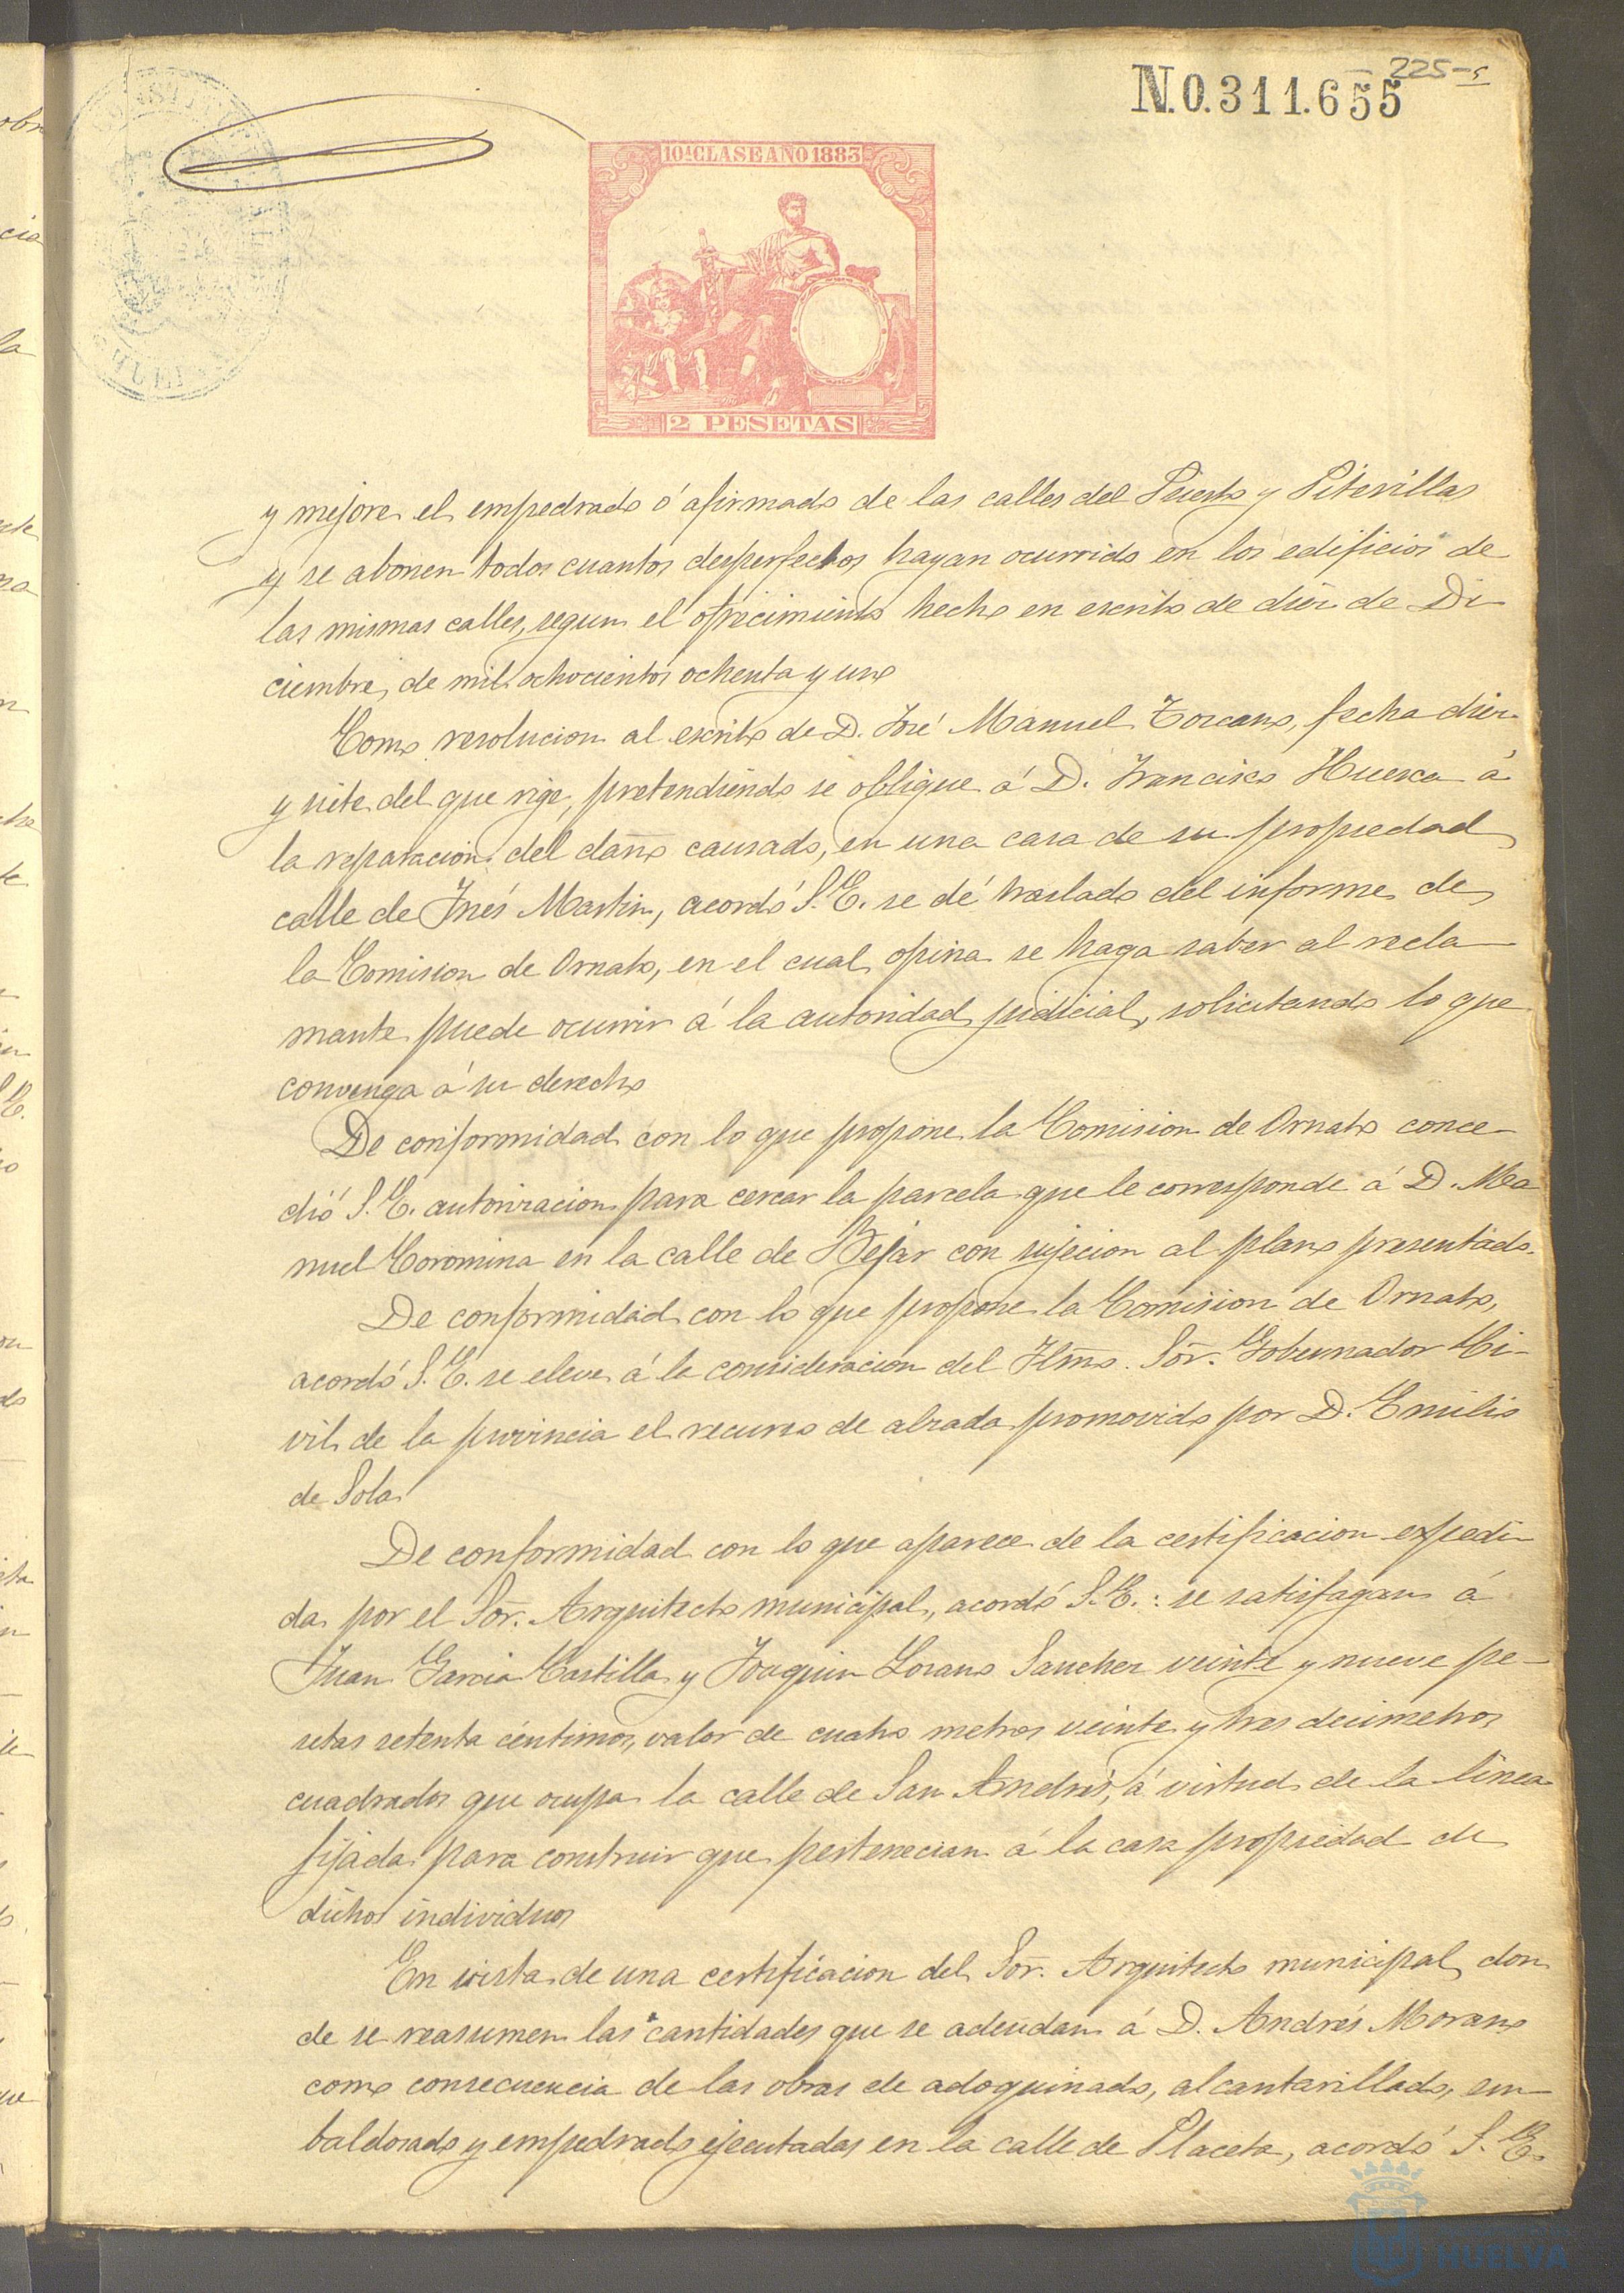 N.0.311.655
225-r
10ª CLASE AÑO 1883
2 PESETAS
y mejore el empedrado ó afirmado de las calles del Puerto y Piterillas
y se abonen todos cuantos desperfectos hayan ocurrido en los edificios de
las mismas calles, segun el ofrecimiento hecho en escrito de diez de Di
ciembre de mil ochocientos ochenta y uno
Como resolucion al escrito de D. José Manuel Toscano, fecha diez
y siete del que rige, pretendiendo se obligue á D. Francisco Huesca á
la reparacion del daño causado, en una casa de su propiedad
calle de Inés Martin, acordó S.E. se dé traslado del informe de
la Comision de Ornato, en el cual opina se haga saber al recla
mante puede ocurrir á la autoridad judicial, solicitando lo que
convenga á su derecho
De conformidad con lo que propone la Comision de Ornato conce-
dió S.E. autorizacion para cercar la parcela que le corresponde á D. Ma
nuel Coromina en la calle de Bejar con sujecion al plano presentado.
De conformidad con lo que propone la Comision de Ornato,
acordó S.E. se eleve á la consideracion del Ilmo. Sor. Gobernador Ci-
vil de la provincia el recurso de alzada promovido por D. Emilio
de Sola
De conformidad con lo que aparece de la certificacion expedi-
da por el Sor. Arquitecto municipal, acordó S.E.: se satisfagan á
Juan Garcia Castilla y Joaquin Lozano Sanchez veinte y nueve pe-
setas setenta céntimos, valor de cuatro metros veinte y tres decimetros
cuadrados que ocupa la calle de San Andrés, á virtud de la linea
fijada para construir que pertenecian á la casa propiedad de
dichos individuos
En vista de una certificacion del Sor. Arquitecto municipal don
de se reasumen las cantidades que se adeudan á D. Andrés Morano
como consecuencia de las obras de adoquinado, alcantarillado, em-
baldosado y empedrado ejecutadas en la calle de Placeta, acordó S.E.
HUELVA